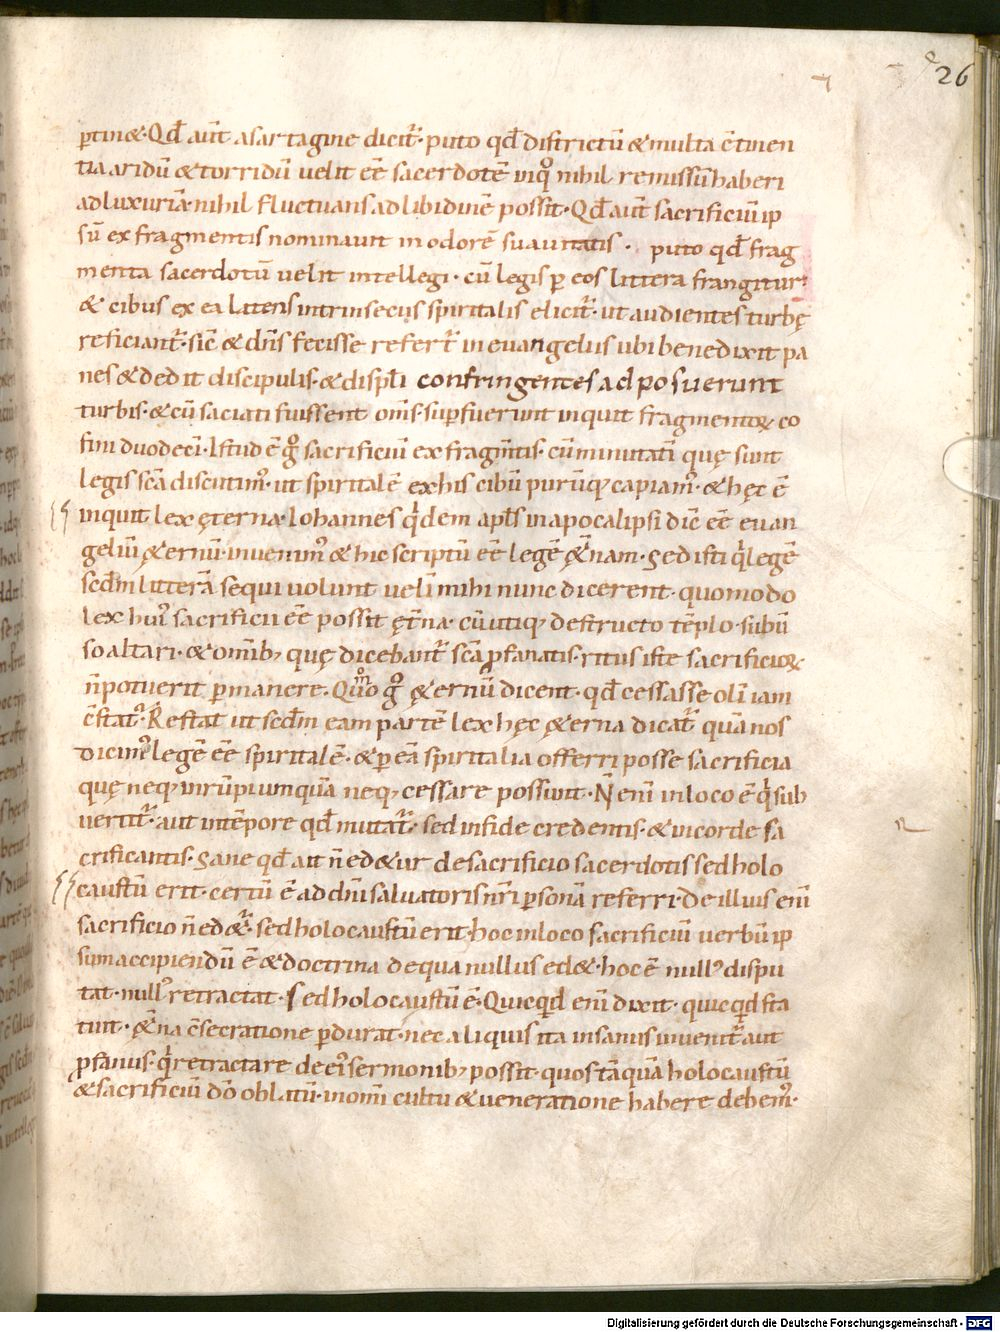 26
ꝑtin&·Qd̄ aut̄ asartagine dicit̄· puto qd̄ districtū & multa c̄tinen
tia aridū & torridū uelit eē sacerdotē inqͦ nihil remissū haberi
adluxuriā· nihil fluctuans ad libidinē possit· Qd̄ aut̄ sacrificiū ip
sū ex fragmentis nominauit in odorē suauitatis· puto qd̄ frag
menta sacerdotū uelit intellegi· cū legis ꝑ eos littera frangitur·
& cibus ex ea latens intrinsecus spiritalis elicit̄· ut audientes turbę
reficiant̄· sic̄ & dn̄s fecisse refert̄ in euangeliis ubi benedixit pa
nes & dedit discipulis· & discipl̄i confringentes adposuerunt
turbis· & cū saciati fuissent om̄s suꝑfuerunt inquit fragmentoꝝ co
fini duodeci· Istud ē gͦ sacrificiū ex fragm̄tis· cū minutati quę sunt
legis scā discutimꝰ· ut spiritalē ex his cibū purūq; capiamꝰ· & hęc ē
inquit lex ęterna· Iohannes qͥdem apl̄s in apocalipsi dic̄ eē euan
geliū ę&ernū· inuenimꝰ & hic scriptū eē legē ę&̄nam· Sed isti qͥ legē
scd̄m litterā sequi uolunt uelī mihi nunc dicerent· quomodo
lex huiꝰ sacrificii eē possit ęt̄na· cū utiq; destructo tēplo· subuer
so altari· & omīb; quę dicebant̄ scā ꝓfanatis· ritus iste sacrificioꝝ
n̄ potuerit ꝑmanere· Quͦmͦ gͦ ę&ernū dicent· qd̄ cessasse olī iam
c̄stat· Restat ut scd̄m eam partē lex hęc ę&erna dicat̄ quā nos
dicimꝰ legē eē spiritalē· & ꝑ eā spiritalia offerri posse sacrificia
quę neq; inrūpi umquā neq; cessare possunt· N̄ enī in loco ē qͥ sub
uertit̄· aut in tēpore qd̄ mutat̄· sed in fide credentis· & in corde sa
crificantis· Sane qd̄ ait n̄ ed&ur de sacrificio sacerdotis sed holo
caustū erit· certū ē ad dn̄i saluatoris nr̄i ꝑsonā referri· de illius enī
sacrificio n̄ ed&̄· sed holocaustū erit· hoc in loco sacrificiū uerbū ip
sum accipiendū ē & doctrina de qua nullus ed&· hoc ē nullꝰ dispu
tat· nullꝰ retractat· Sed holocaustū ē· Quicqd̄ enī dixit· quicqd̄ sta
tuit· ę&̄na c̄secratione ꝑdurat· nec aliquis ita insanus inuenit̄ aut
ꝓfanus· qͥ retractare de eiꝰ sermonib; possit· quos tāquā holocaustū
& sacrificiū dō oblatū· in omī cultu & ueneratione habere debemꝰ·
Digitalisierung gefördert durch die Deutsche Forschungsgemeinschaft - DFG